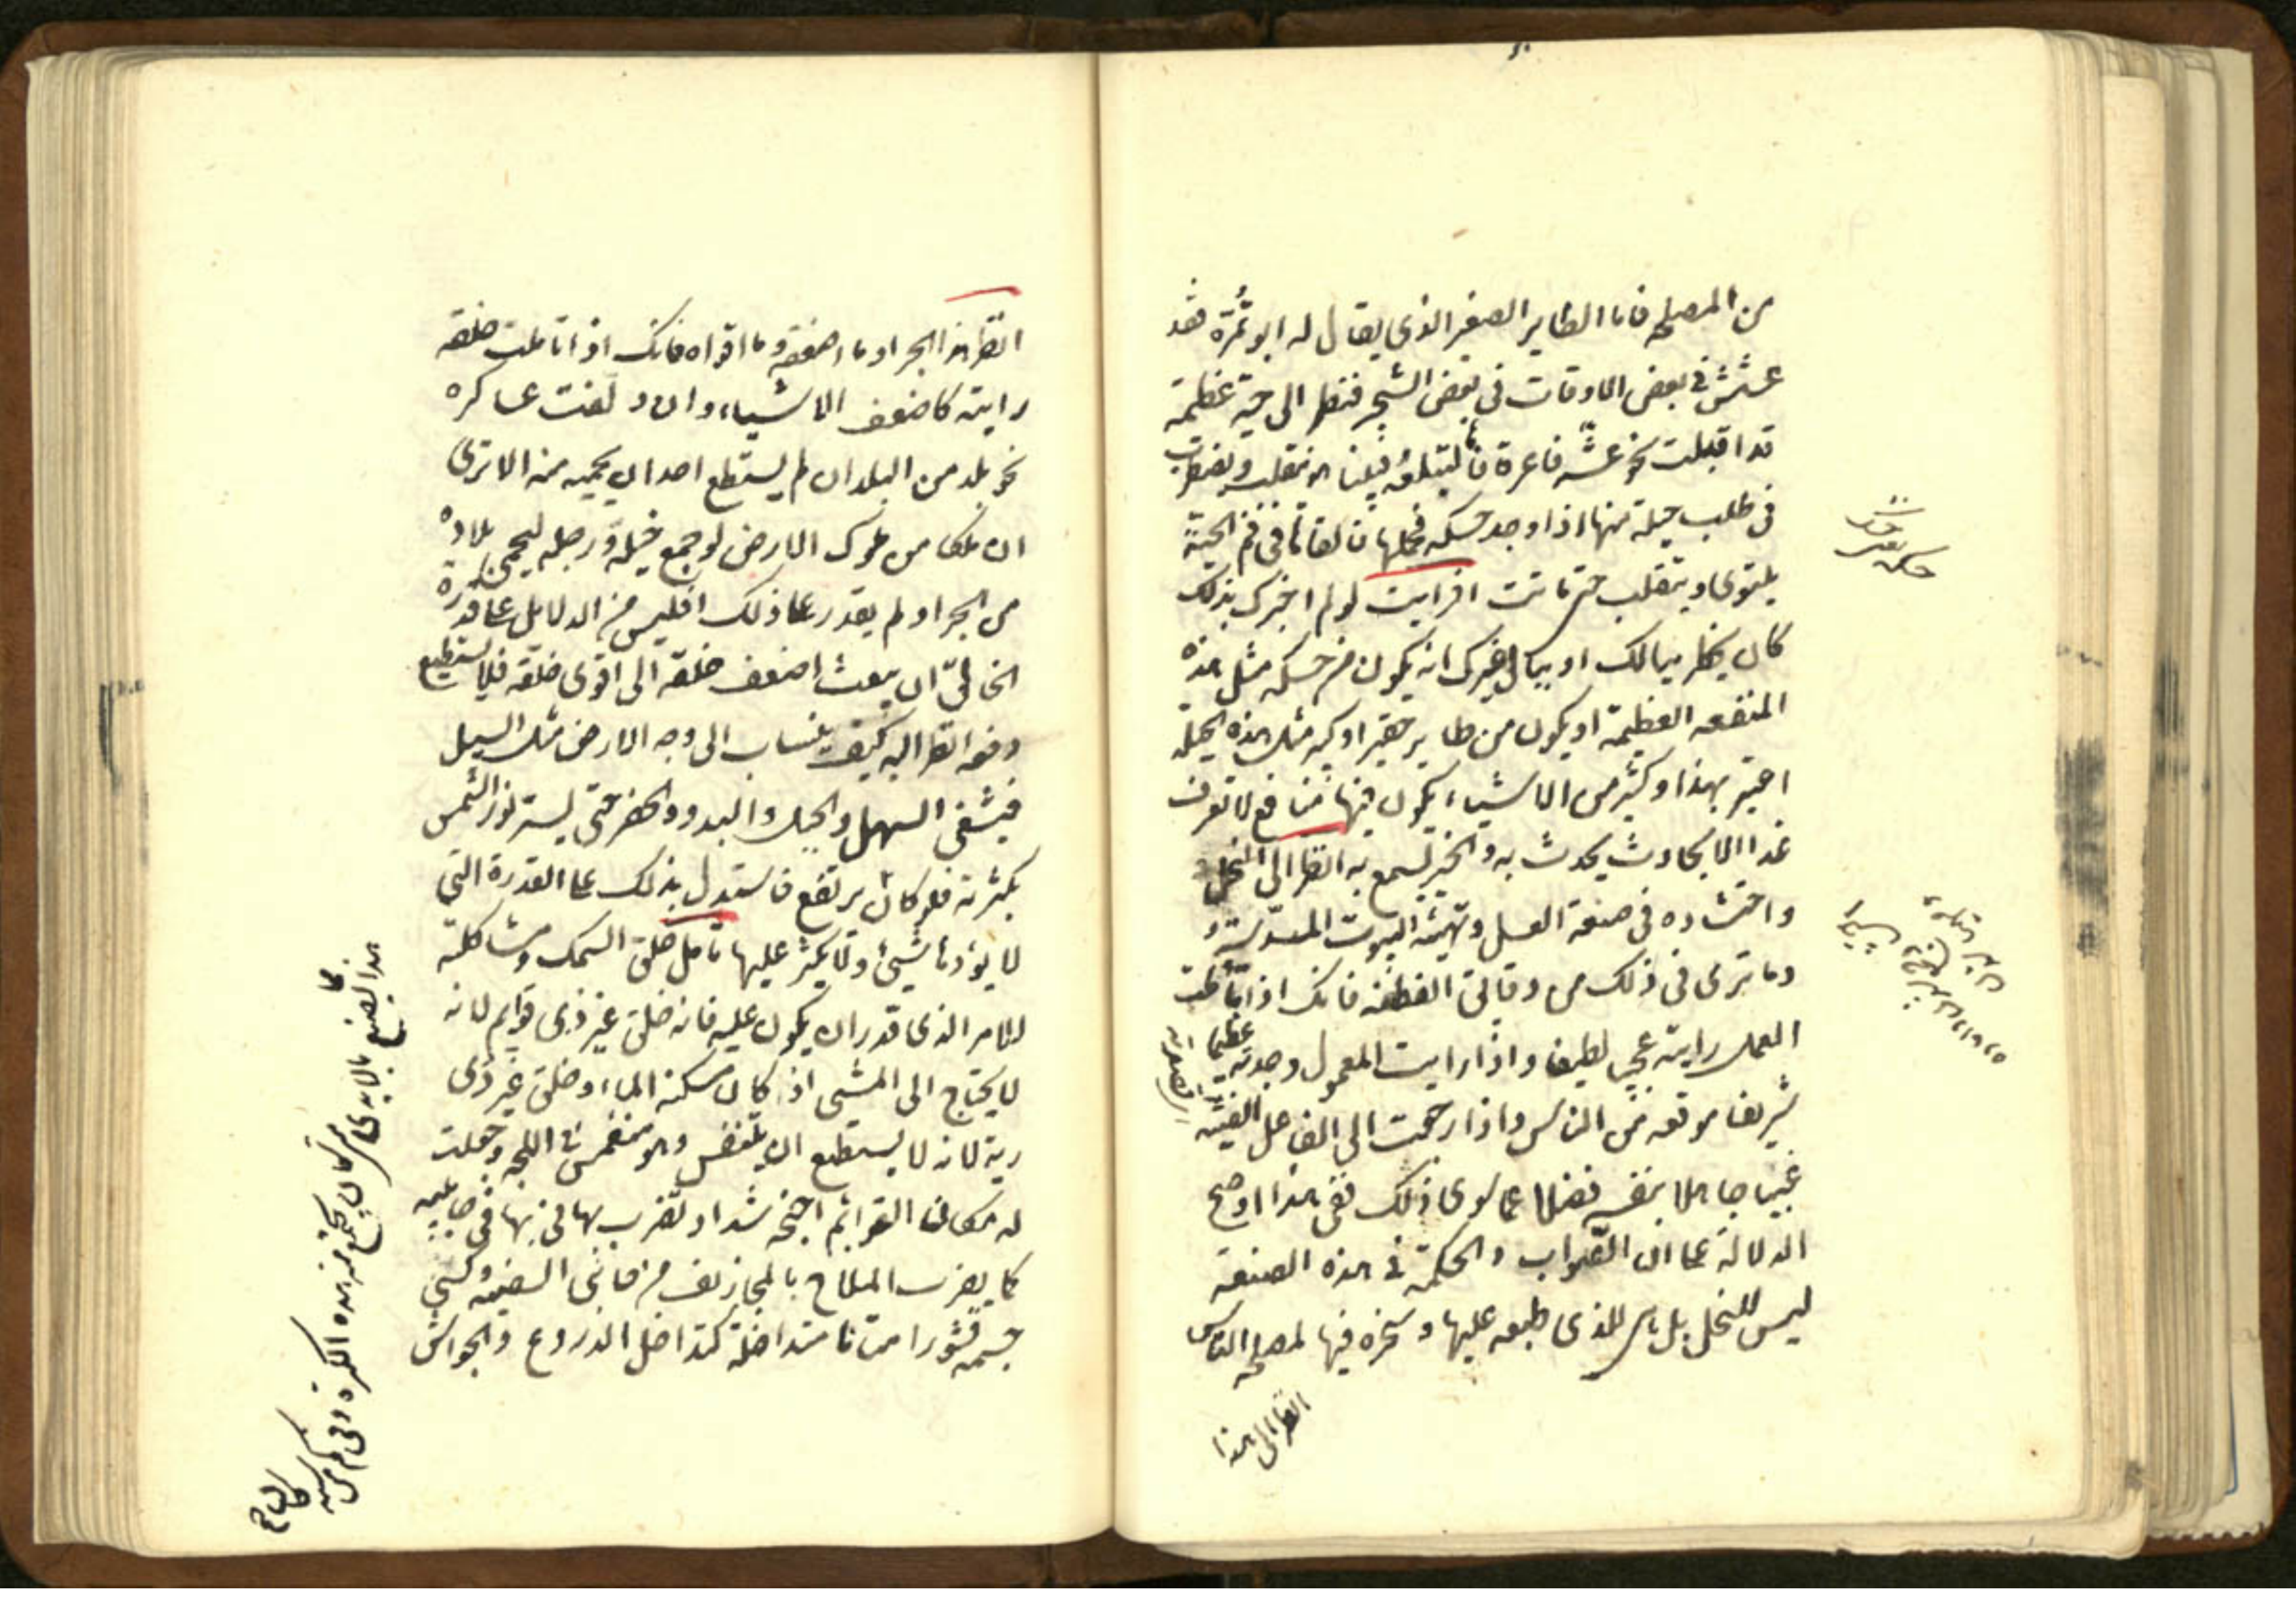 من المصلحة فاما الطاير الصغير الذى يقال له ابو تُمّرة فقد
عشش فى بعض الاوقات فى بعض الشجر فنظر الى حية عظيمة
قد اقبلت نحو عشّه فاغرة فاها لتبلعه فبينا هو يتقلب ويضطرب
فى طلب حيلة منها اذا وجد حسكة فحملها فالقاها فى فم الحية
يلتوى ويتقلب حتى ماتت افرايت لو لم اخبرك بذلك
كان يخطر ببالك او ببال غيرك انه يكون من حسكة مثل هذه
المنفعه العظيمة او يكون من طاير صغير او كبير مثل هذه الحيلة
اعتبر بهذا وكثير من الاشياء يكون فيها منافع لا تعرف
الا بحادث يحدث به والخبر يسمع به انظر الى النحل
واحتشاده فى صنعة العسل وتهيئة البيوت المسدسة
وما ترى فى ذلك من دقائق الفطنه فانك اذا تأملت
العمل رايته عجيبا لطيفا واذا رايت المعمول وجدته عظيما
شريفا موقعه من الناس واذا رجعت الى الفاعل الفيته
غبيا جاهلا بنفسه فضلا عما سوى ذلك ففى هذا اوضح
الدلالة على ان الصواب والحكمة فى هذه الصنعة
ليس للنحل بل هى للذى طبعه عليها وسخره فيها لمصلحة الناس
انظر الى هذا
انظر هذا الجراد ما اضعفه وما اقواه فانك اذا تاملت خلقه
رايته كاضعف الاشياء وان دلفت عساكره
نحو بلد من البلدان لم يستطع احد ان يحميه منه الا ترى
ان ملكا من ملوك الارض لو جمع خيله ورجله ليحمى بلاده
من الجراد لم يقدر على ذلك افليس من الدلايل على قدرة
الخالق ان يبعث اضعف خلقه الى اقوى خلقه فلا يستطيع
دفعه انظر اليه كيف ينساب الى وجه الارض مثل السيل
فيغشى السهل والجبل والبدو والحضر حتى يستر نور الشمس
بكثرته فلو كان يرتفع فاستدل بذلك على القدرة التى
لا يؤدها شيئ ولا يكثر عليها تامل خلق السمك ومشاكلته
للامر الذى قدر ان يكون عليه فانه خلق غير ذى قوايم لانه
لا يحتاج الى المشى اذ كان مسكنه الماء وخلق غير ذى
رية لانه لا يستطيع ان يتنفس وهو منغمس فى اللجة وجعلت
له مكان القوائم اجنحة شداد تضرب بها فى جانبيه
كما يضرب الملاح بالمجازيف من جانبى السفينة وكسى
جسمه قشورا متانا متداخلة كتداخل الدروع والجواشن